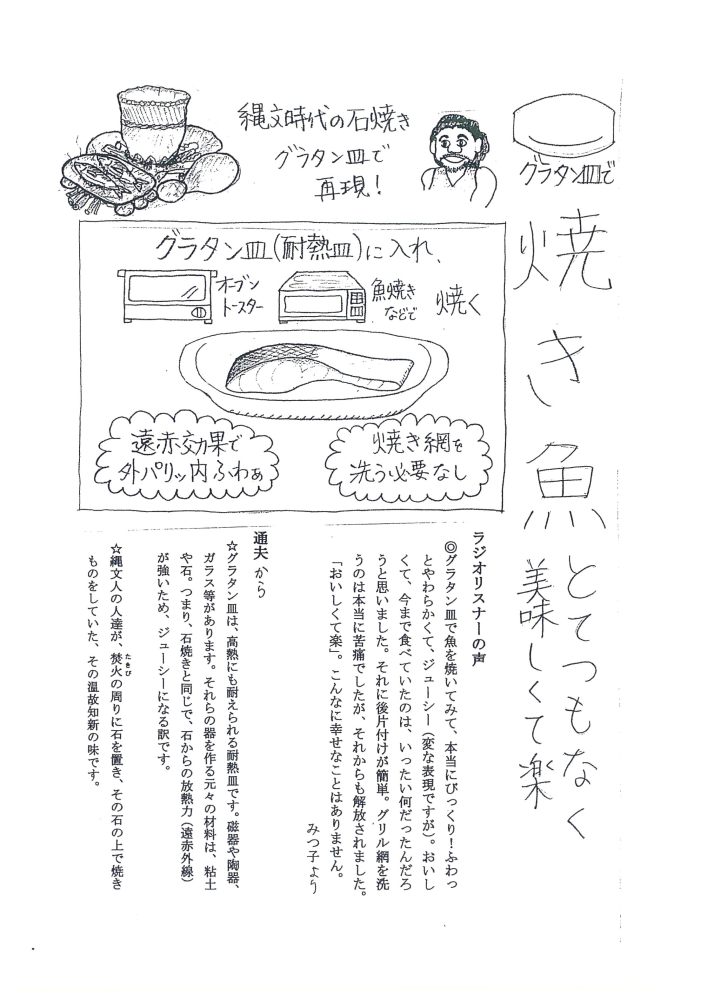 グラタン皿で
焼き魚
とてつもなく
美味しくて楽
縄文時代の石焼き
グラタン皿で
再現！
グラタン皿(耐熱皿)に入れ、
オーブン
トースター
魚焼き
などで
焼く
遠赤効果で
外パリッ内ふわぁ
焼き網を
洗う必要なし
ラジオリスナーの声
◎グラタン皿で魚を焼いてみて、本当にびっくり！ふわっ
とやわらかくて、ジューシー（変な表現ですが）。おいし
くて、今まで食べていたのは、いったい何だったんだろ
うと思いました。それに後片付けが簡単。グリル網を洗
うのは本当に苦痛でしたが、それからも解放されました。
「おいしくて楽」。こんなに幸せなことはありません。
みつ子より
通夫から
☆グラタン皿は、高熱にも耐えられる耐熱皿です。磁器や陶器、
ガラス等があります。それらの器を作る元々の材料は、粘土
や石。つまり、石焼きと同じで、石からの放熱力（遠赤外線）
が強いため、ジューシーになる訳です。
☆縄文人の人達が、焚火の周りに石を置き、その石の上で焼き
たきび
ものをしていた、その温故知新の味です。